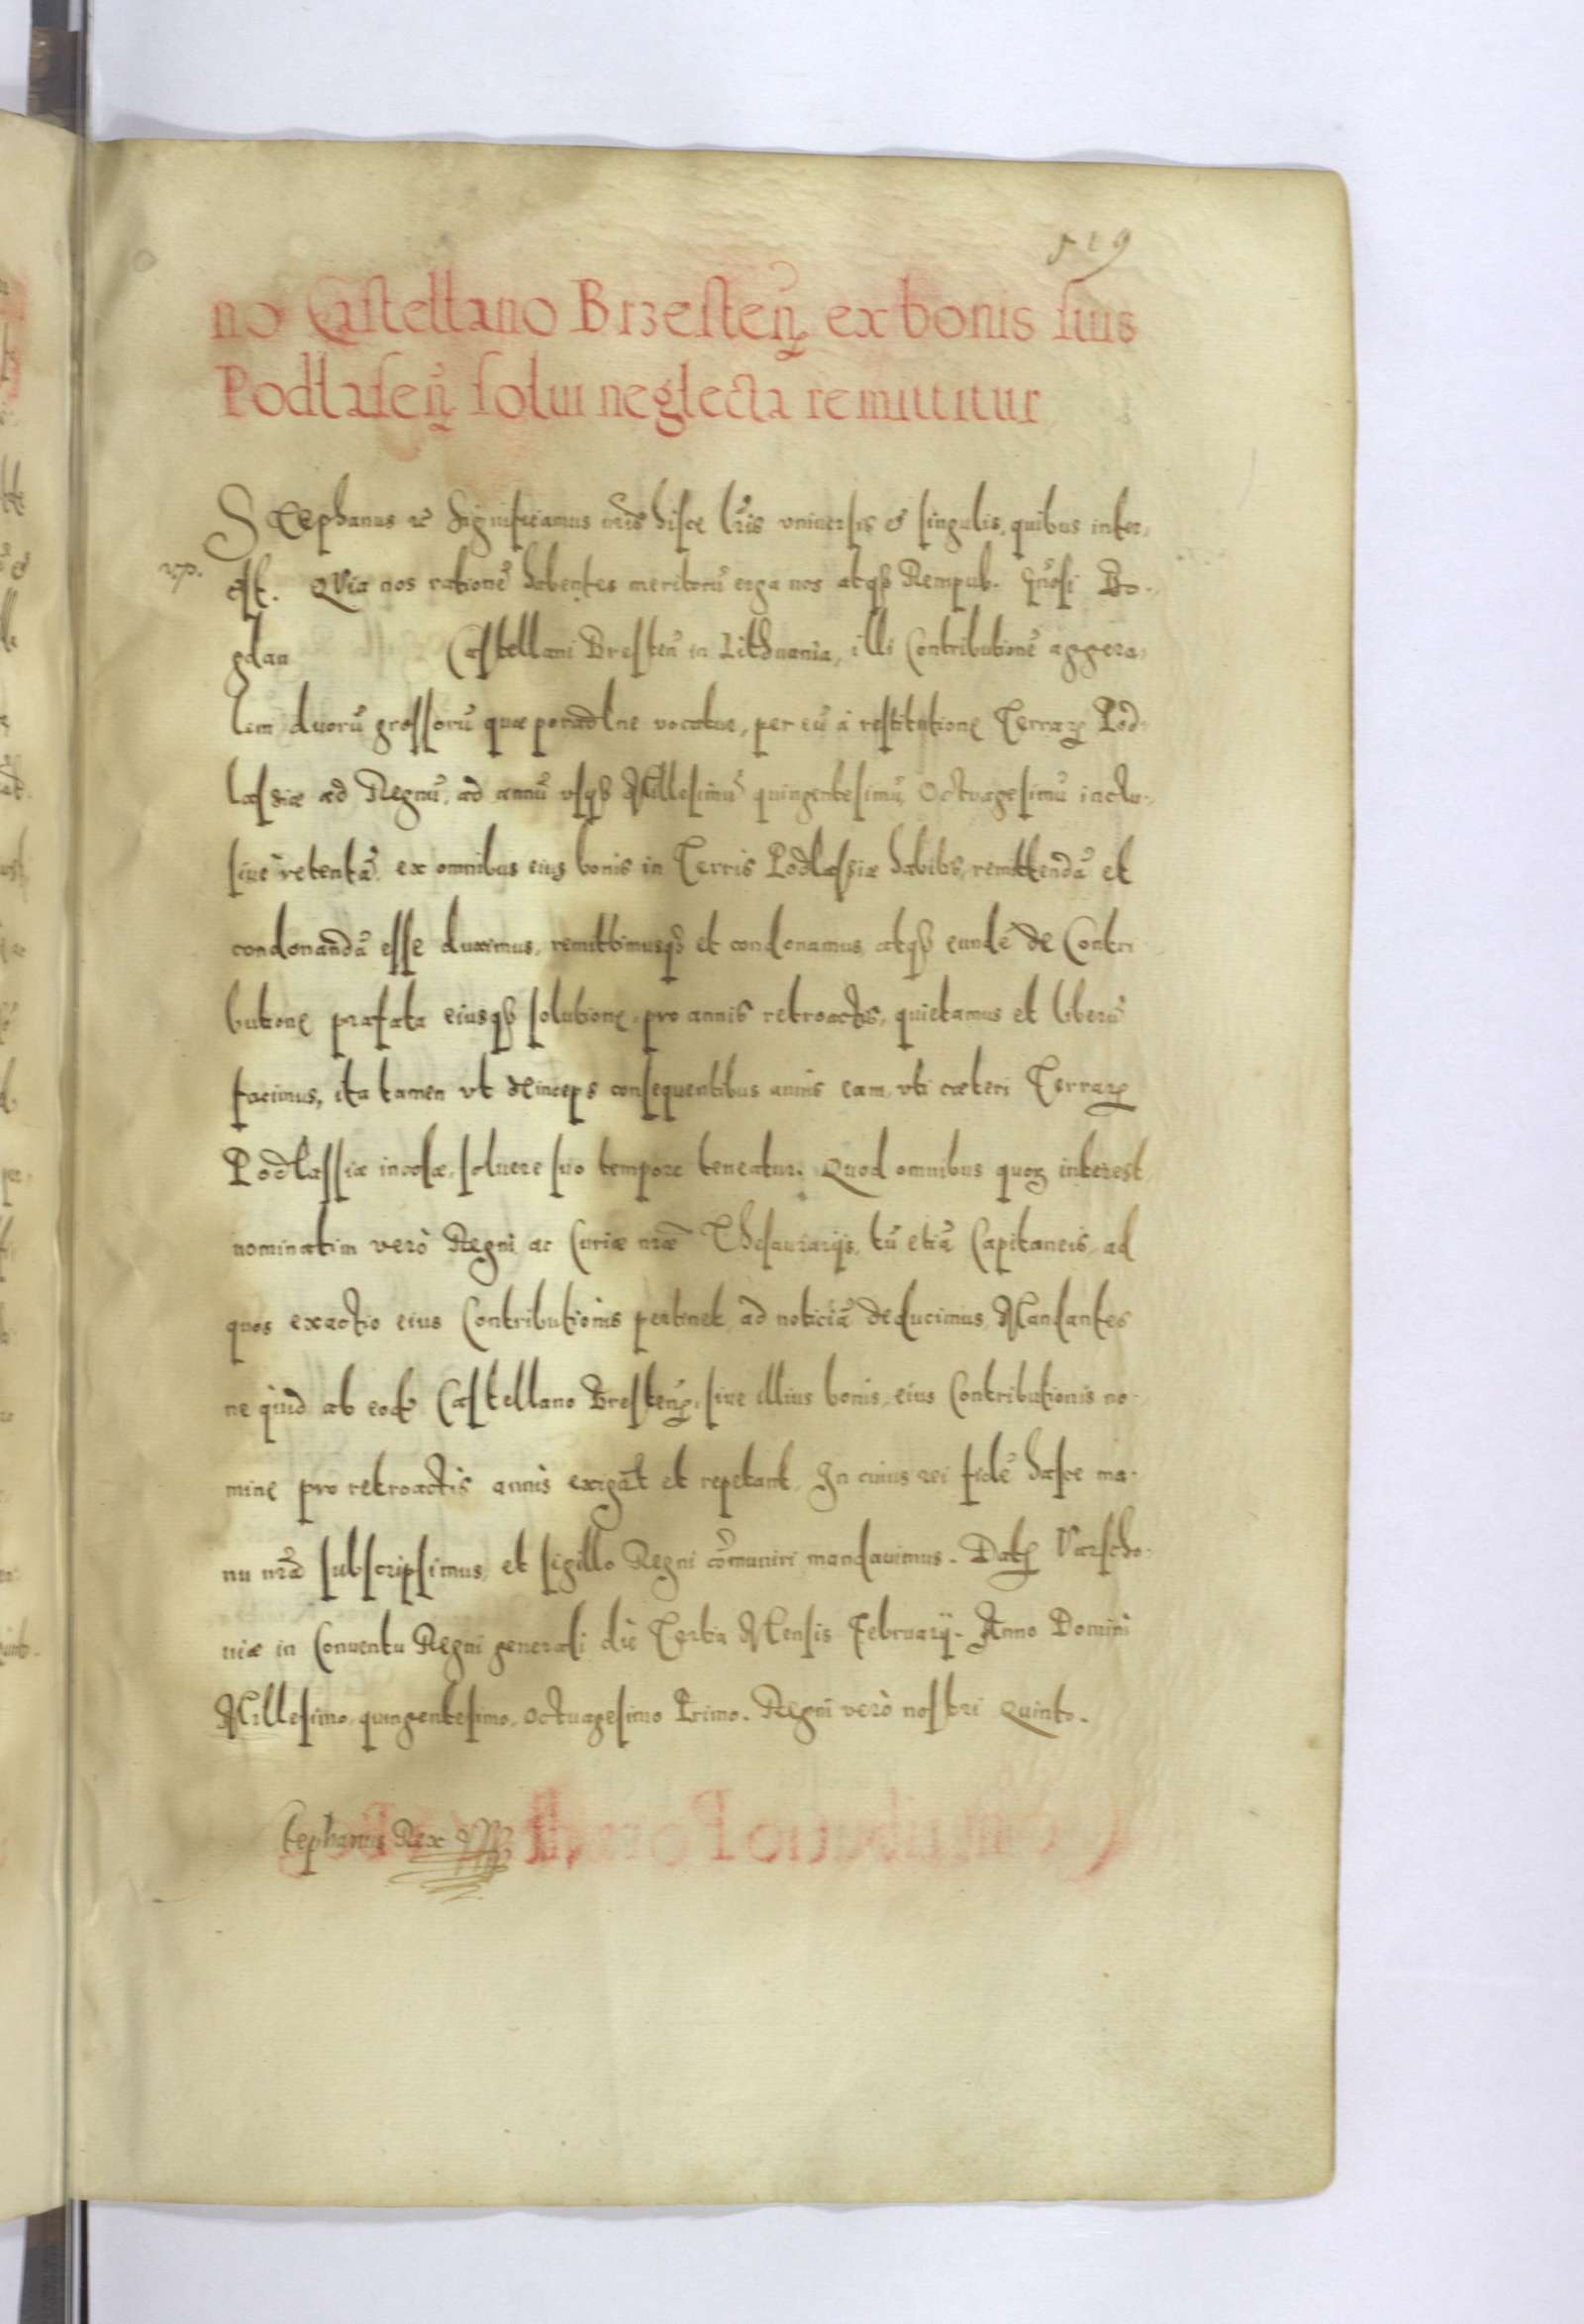 519
no Castellano Brzesteñ ex bonis suis
Podlaseñ solui neglecta remittitur
Stephanus &c Significamus nr̃is hisce lr̃is vniuersis & singulis, quibus inter,
est. Quia nos rationẽ habentes meritorũ erga nos atqȝ Rempub. Gñosi Bo-
gdan Castellani Bresteñ in Lithuania, illi Contributionẽ aggera,
lem duorũ grossorũ quæ poradlne vocatur, per eũ à restitutione Terrarꝝ Pod-
lassiæ ad Regnũ, ad annũ vsqȝ Millesimũ quingentesimũ Octuagesimũ inclu-
siue retentã, ex omnibus eius bonis in Terris Podlassiæ habitis, remittendã et
condonandã esse duximus, remittimusqȝ et condonamus, atqȝ eundẽ de Contri
butione præfata eiusqȝ solutione, pro annis retroactis, quietamus et liberũ
facimus, ita tamen vt deinceps consequentibus annis eam, vti cæteri Terrarꝝ
Podlassiæ incolæ, soluere suo tempore teneatur. Quod omnibus quoȝ interest
nominatim verò Regni ac Curiæ nr̃æ Thesaurarijs, tũ etiã Capitaneis, ad
quos exactio eius Contributionis pertinet, ad noticiã deducimus, Mandantes
ne quid ab eod Castellano Bresteñ, siue illius bonis, eius Contributionis no-
mine pro retroactis annis exigãt et repetant. In cuius rei fidẽ hasce ma-
nu nr̃a subscripsimus, et sigillo Regni cõmuniri mandauimus. Datꝝ Varscho-
uiæ in Conuentu Regni generali die Tertia Mensis Februarij. Anno Domini
Millesimo, quingentesimo, octuagesimo Primo. Regni verò nostri Quinto.
Stephanus Rex